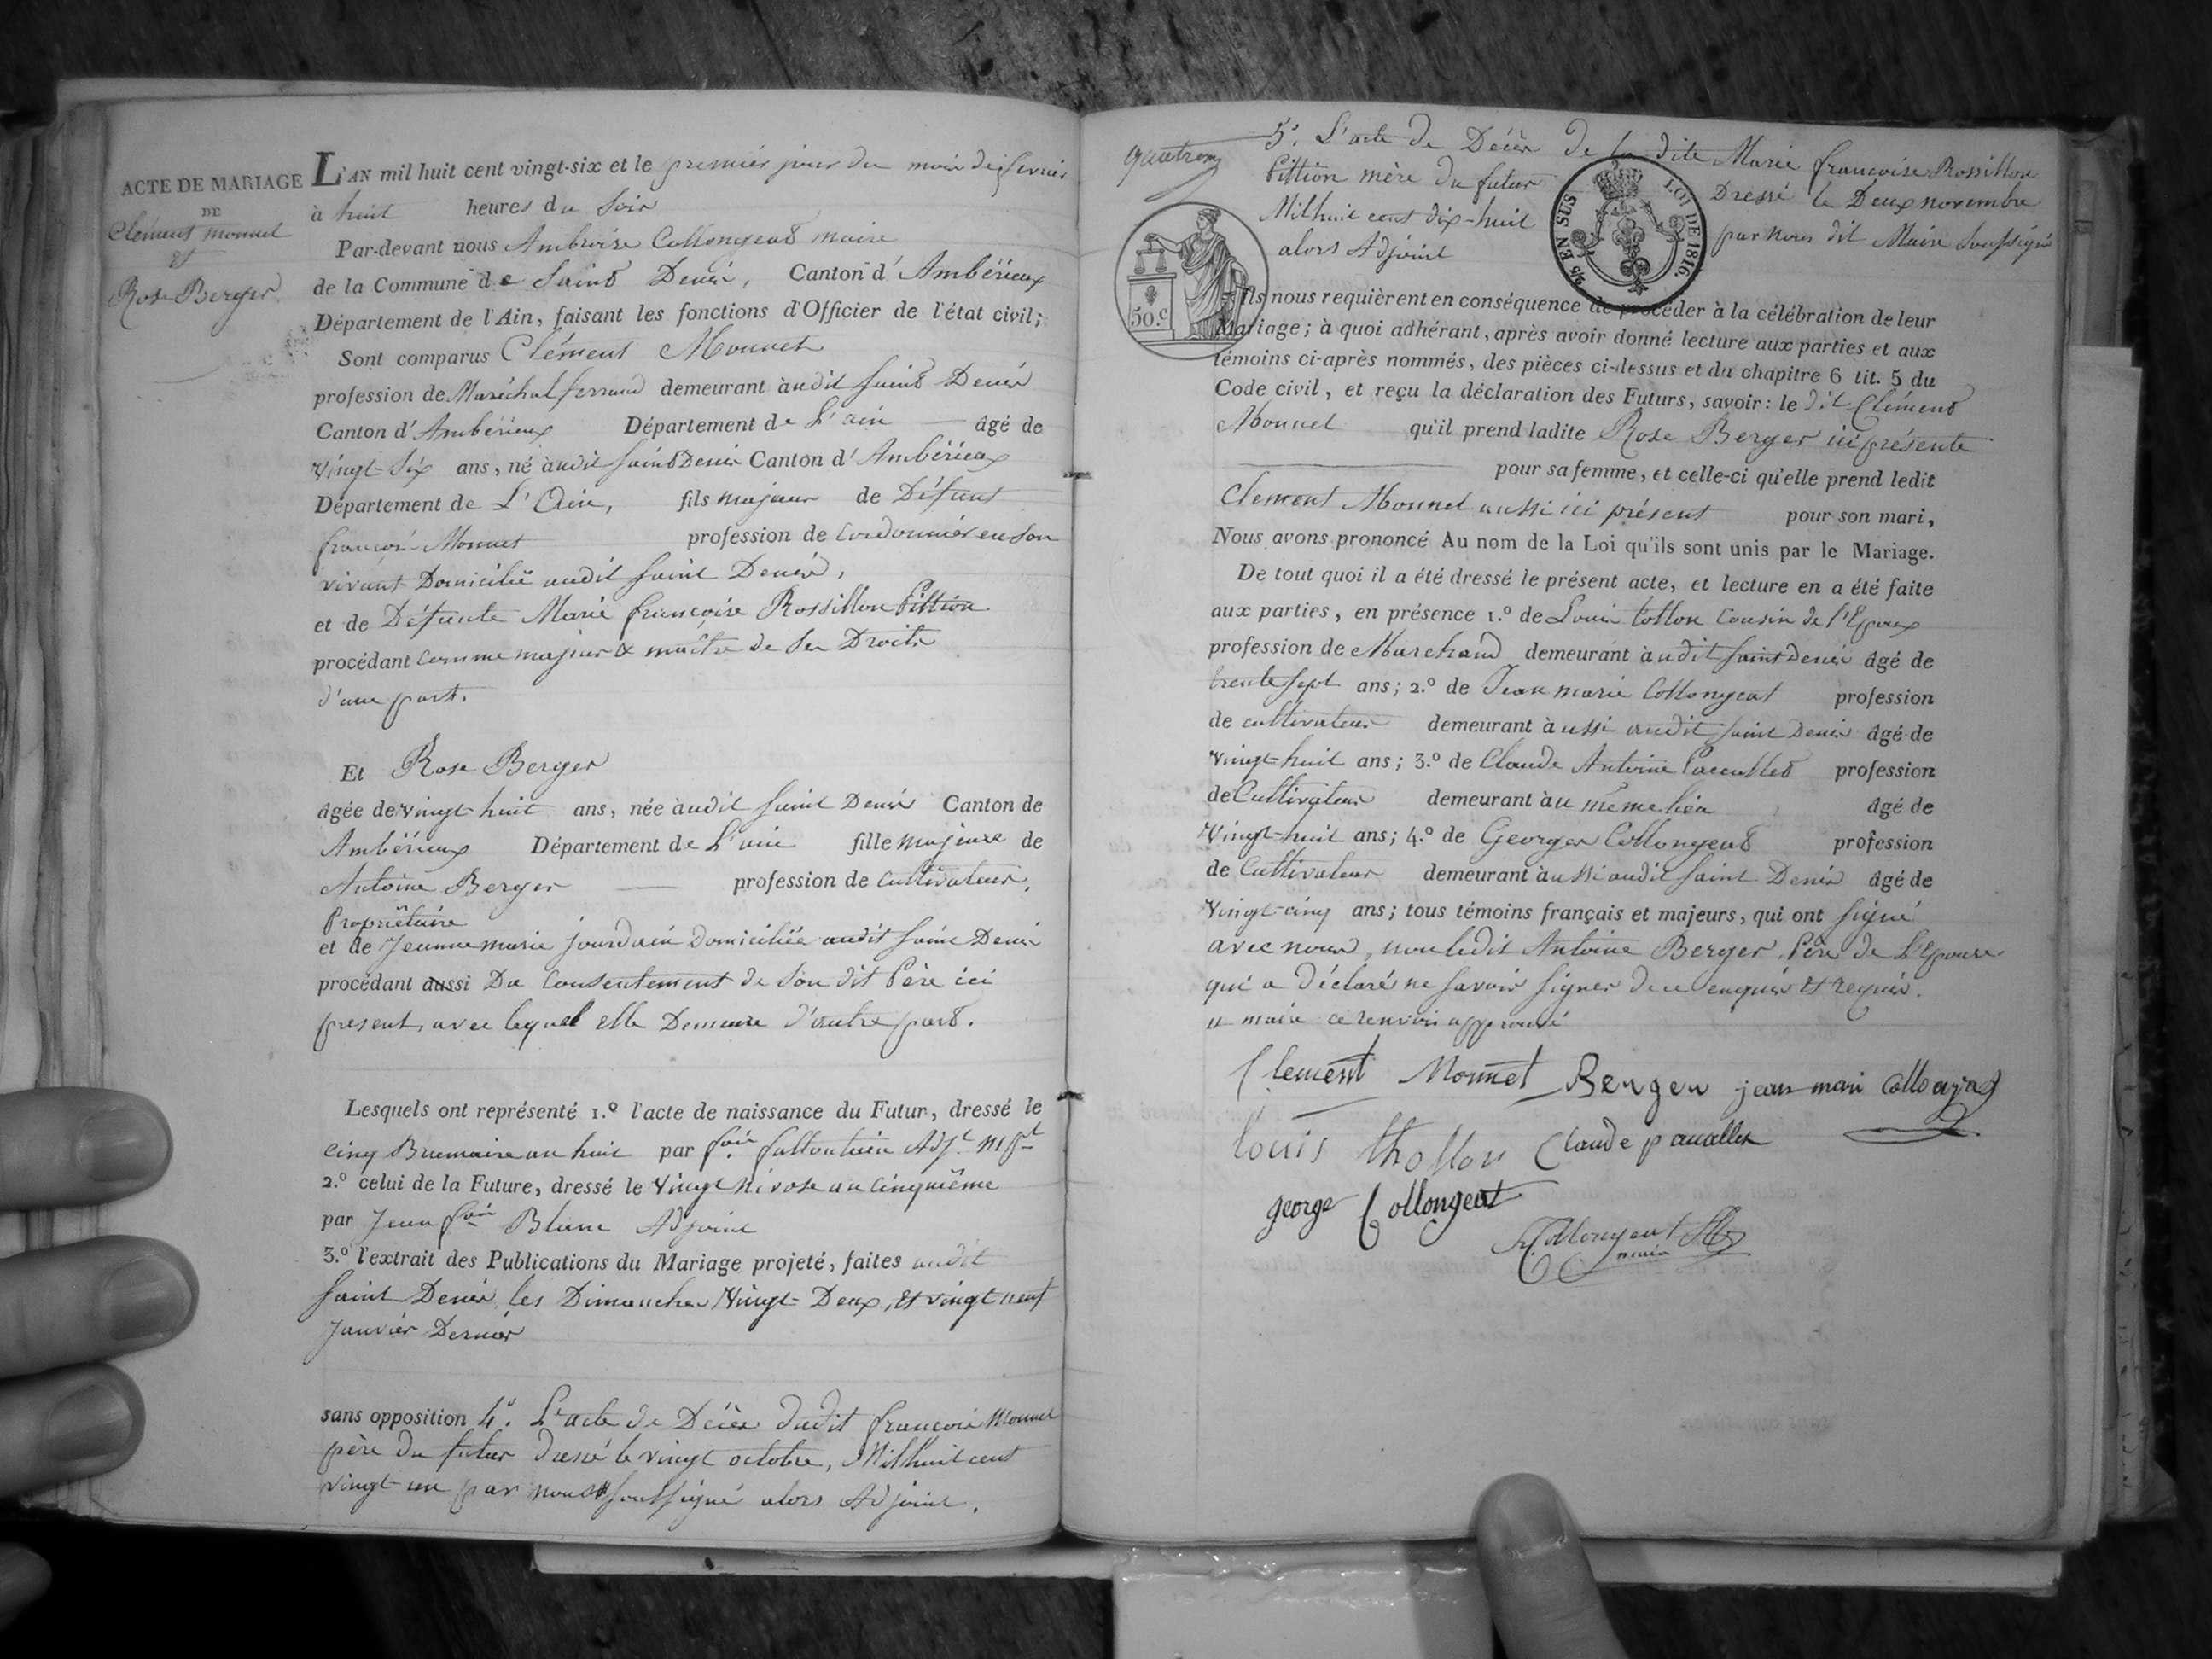 ACTE DE MARIAGE
DE
Clément monnet
et
Rose Berger
L'AN mil huit cent vingt-six et le premier jour du mois de fevrier
à huit heures du soir
Par-devant nous Ambroise Collongeat maire
de la Commune de Saint Denis, Canton d'Ambérieux
Département de l'Ain, faisant les fonctions d'Officier de l'état civil;
Sont comparus Clément Monnet
profession de Maréchal ferrand demeurant àudit saint Denis
Canton d'Ambérieux Département de L'ain âgé de
vingt-six ans, né àudit saint Denis Canton d'Ambérieux
Département de L'Ain, fils majeur de Défunt
françois Monnet profession de Cordonnier en son
vivant Domicilié audit saint Denis,
et de Défunte Marie françoise Rossillon Pittion
procédant comme majeur & maître de ses Droits
d'une part.
Et Rose Berger
âgée de vingt-huit ans, née àudit saint Denis Canton de
Ambérieux Département de L'ain fille majeure de
Antoine Berger profession de cultivateur,
Propriétaire
et de Jeanne marie jourdain Domiciliée audit saint Denis
procédant aussi Du Consentement de Son dit Père ici
present, avec lequel elle Demeure d'autre part.
Lesquels ont représenté 1.º l'acte de naissance du Futur, dressé le
cinq Brumaire an huit par
2.º celui de la Future, dressé le vingt nivose an cinquième
par Jean fois Blanc Adjoint
3.º l'extrait des Publications du Mariage projeté, faites audit
saint Denis les Dimanches Vingt-Deux, et vingt neuf
Janvier Dernier
sans opposition 4º. L'acte de Décès dudit françois Monnet
père du futur dressé le vingt octobre, Mil huit cent
vingt-un par nous soussigné alors Adjoint.
5º. L'acte de Décès de la dite Marie françoise Rossillon
Pittion mère du futur Dressé le Deux novembre
Mil huit cent dix-huit par nous dit Maire soussigné
alors Adjoint
25 EN SUS LOI DE 1816.
50.c
Ils nous requièrent en conséquence de procéder à la célébration de leur
Mariage; à quoi adhérant, après avoir donné lecture aux parties et aux
témoins ci-après nommés, des pièces ci-dessus et du chapitre 6 tit. 5 du
Code civil, et reçu la déclaration des Futurs, savoir: le dit Clément
Monnet qu'il prend ladite Rose Berger ici présente
pour sa femme, et celle-ci qu'elle prend ledit
Clement Monnet aussi ici présent pour son mari,
Nous avons prononcé Au nom de la Loi qu'ils sont unis par le Mariage.
De tout quoi il a été dressé le présent acte, et lecture en a été faite
aux parties, en présence 1.º de Louis tollon Cousin de l'Epoux
profession de Marchand demeurant àudit saint Denis âgé de
trente sept ans; 2.º de Jean marie Collongeat profession
de cultivateur demeurant àussi audit saint Denis âgé de
vingt-huit ans; 3.º de Claude Antoine Pacallet profession
de Cultivateur demeurant àu même lieu âgé de
Vingt-huit ans; 4.º de Georges Collongeat profession
de Cultivateur demeurant àussi audit saint Denis âgé de
Vingt-cinq ans; tous témoins français et majeurs, qui ont signé
avec nous, non ledit Antoine Berger, Père de L'Epouse
qui a déclaré ne savoir signer de ce enquis et requis.
ce renvoi approuvé
Clement Monnet Berger jean mari Collongeat
louis thollon Claude pacallet
george Collongeat
Collongeat
maire